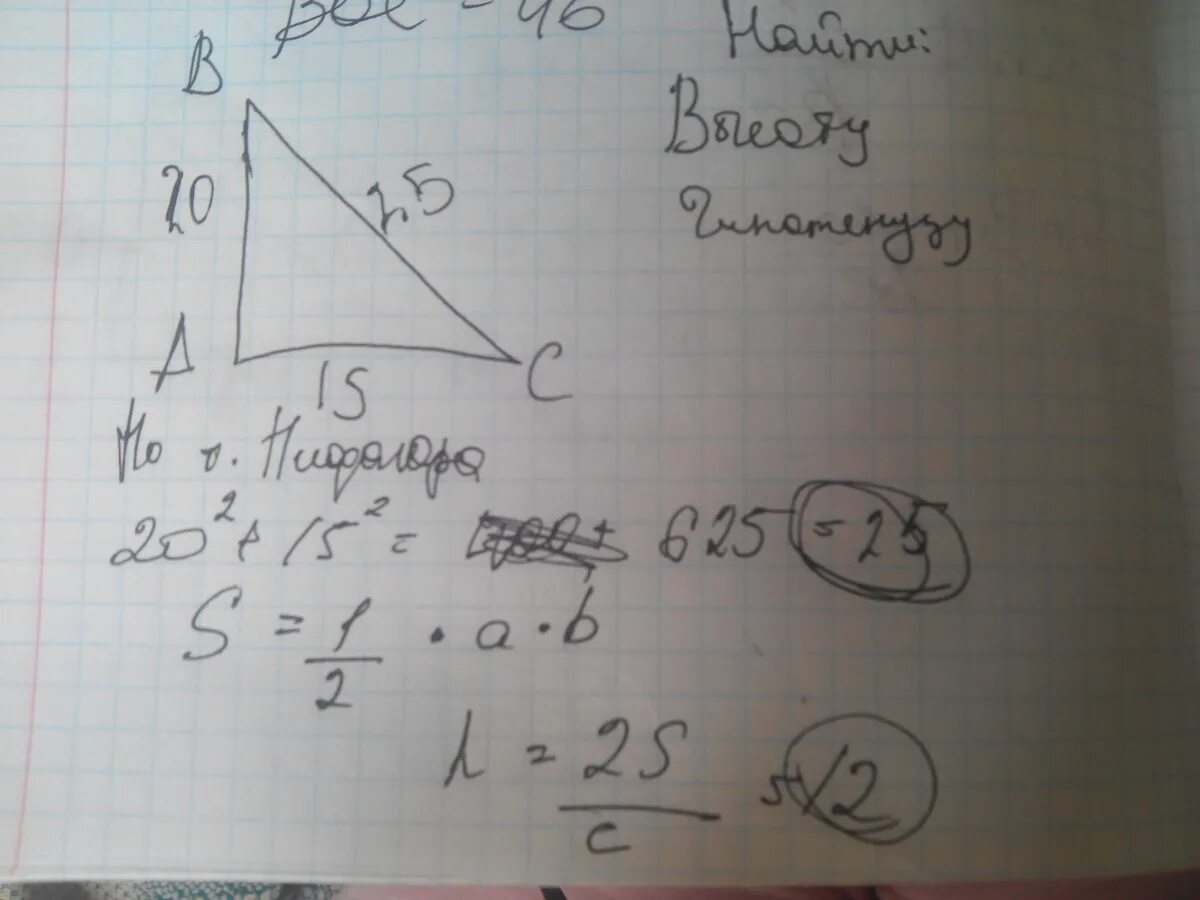 = 46
Найти:
B
Высоту
20
25
Гипотенузу
A
15
C
По т. Пифагора
20² + 15² = 625 = 25
S = 1/2 · a · b
h = 2S/c = 12